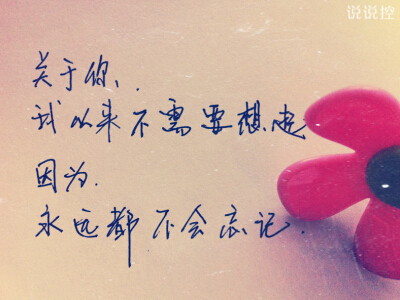 说说控
关于你、.
我从来不需要想起
因为.
永远都不会忘记.